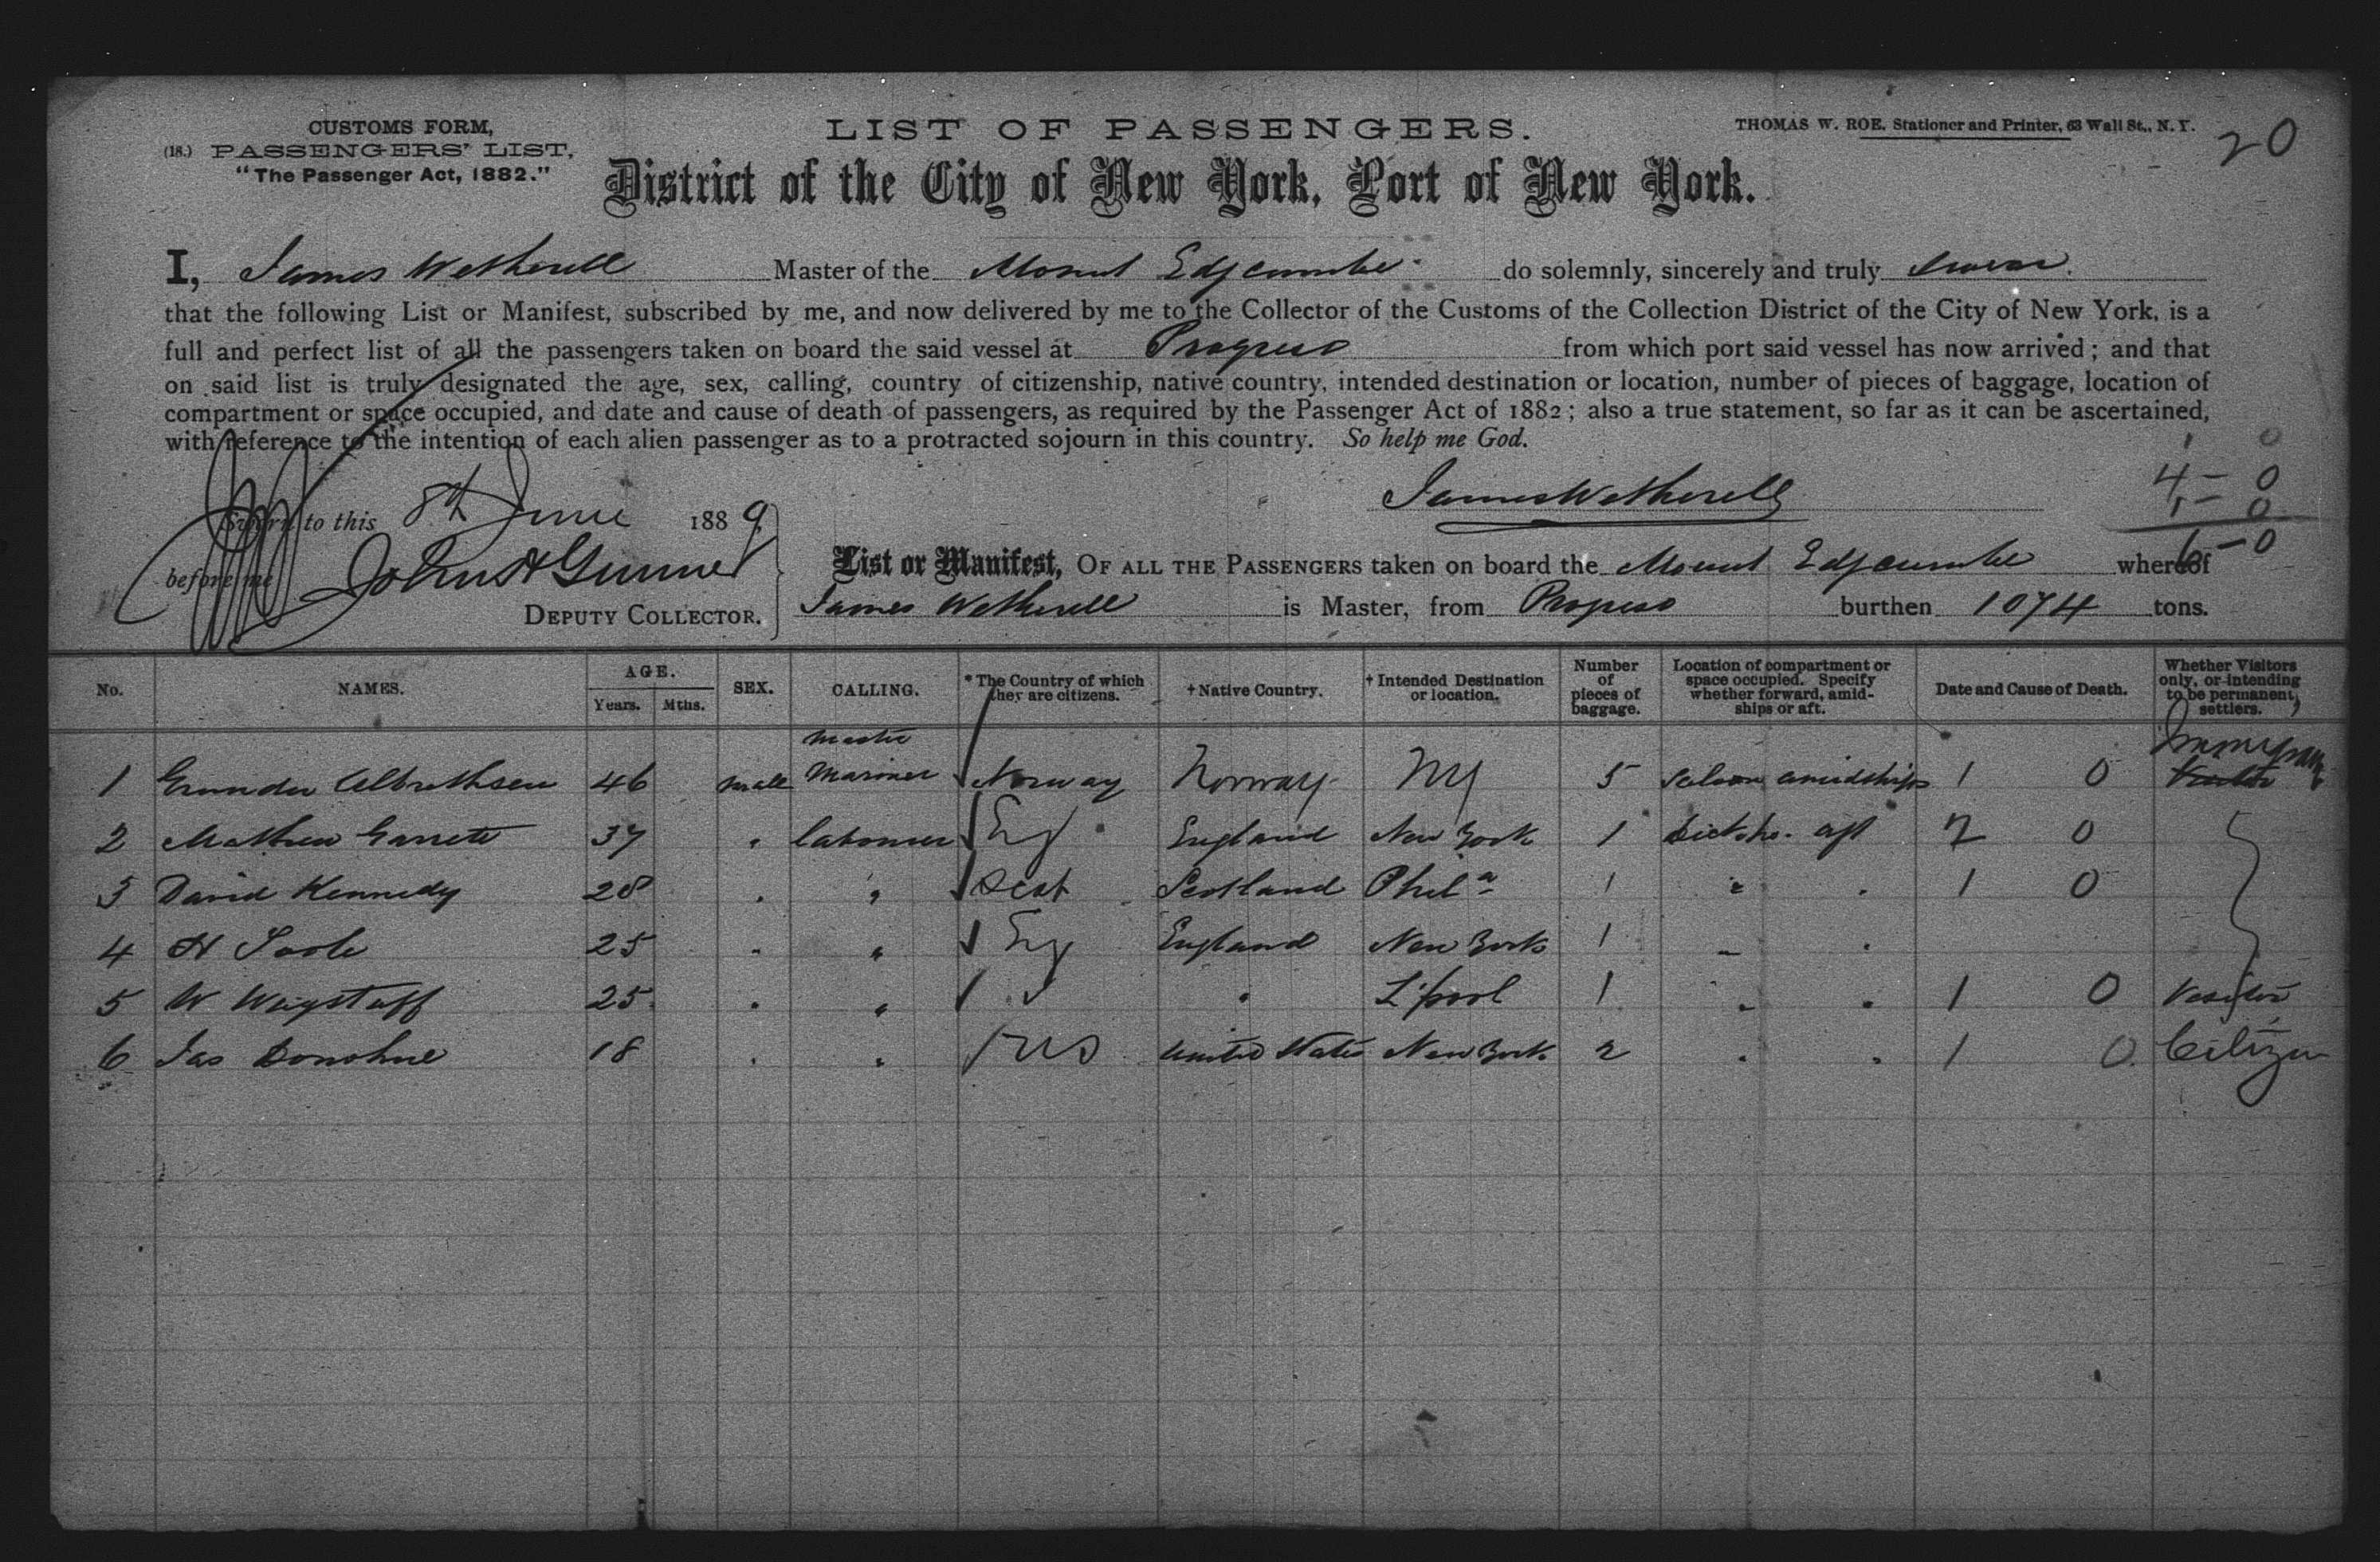 CUSTOMS FORM,
(18.) PASSENGERS' LIST,
"The Passenger Act, 1882."
LIST OF PASSENGERS.
THOMAS W. ROE, Stationer and Printer, 63 Wall St., N. Y.
20
District of the City of New York, Port of New York.
I, James Wetherell Master of the Mount Edgcumbe do solemnly, sincerely and truly swear
that the following List or Manifest, subscribed by me, and now delivered by me to the Collector of the Customs of the Collection District of the City of New York, is a
full and perfect list of all the passengers taken on board the said vessel at Progreso from which port said vessel has now arrived; and that
on said list is truly designated the age, sex, calling, country of citizenship, native country, intended destination or location, number of pieces of baggage, location of
compartment or space occupied, and date and cause of death of passengers, as required by the Passenger Act of 1882; also a true statement, so far as it can be ascertained,
with reference to the intention of each alien passenger as to a protracted sojourn in this country. So help me God.
1 0
4 - 0
1 - 0
6 - 0
James Wetherell
Sworn to this 8th June 1889
before me John H Gunner
DEPUTY COLLECTOR.
List or Manifest, OF ALL THE PASSENGERS taken on board the Mount Edgcumbe whereof
James Wetherell is Master, from Progreso burthen 1074 tons.
No. NAMES. AGE. Years. Mths. SEX. CALLING. * The Country of which they are citizens. † Native Country. † Intended Destination or location. Number of pieces of baggage. Location of compartment or space occupied. Specify whether forward, amidships or aft. Date and Cause of Death. Whether Visitors only, or intending to be permanent settlers.
1 Albrethsen 46 male Master Mariner Norway Norway NY 5 Saloon amidships 1 0 Immigrant
2 Mathew Garrett 37 " labourer Eng England New York 1 aft 2 0
3 David Kennedy 28 " " Scot Scotland Phila 1 " " 1 0
4 H 25 " " Eng England New York 1 " "
5 W Wagstaff 25 " " " " L'pool 1 " " 1 0 Visitor
6 Jas Donohue 18 " " US United States New York 2 " " 1 0 Citizen